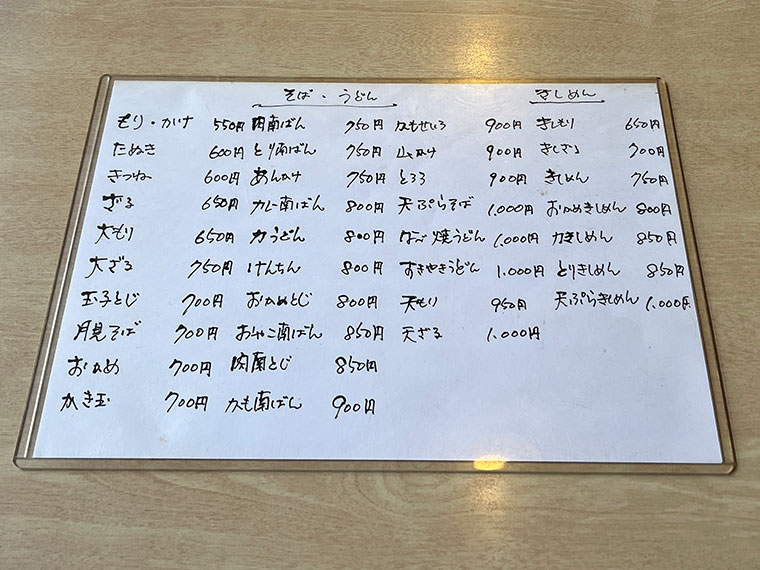 そば・うどん
もり・かけ 550円
たぬき 600円
きつね 600円
ざる 650円
大もり 650円
大ざる 750円
玉子とじ 700円
月見そば 700円
おかめ 700円
かき玉 700円
肉南ばん 750円
とり南ばん 750円
あんかけ 750円
カレー南ばん 800円
力うどん 800円
けんちん 800円
おかめとじ 800円
おやこ南ばん 850円
肉南とじ 850円
かも南ばん 900円
かもせいろ 900円
山かけ 900円
とろろ 900円
天ぷらそば 1,000円
なべ焼うどん 1,000円
すきやきうどん 1,000円
天もり 950円
天ざる 1,000円
きしめん
きしもり 650円
きしざる 700円
きしめん 750円
おかめきしめん 800円
力きしめん 850円
とりきしめん 850円
天ぷらきしめん 1,000円